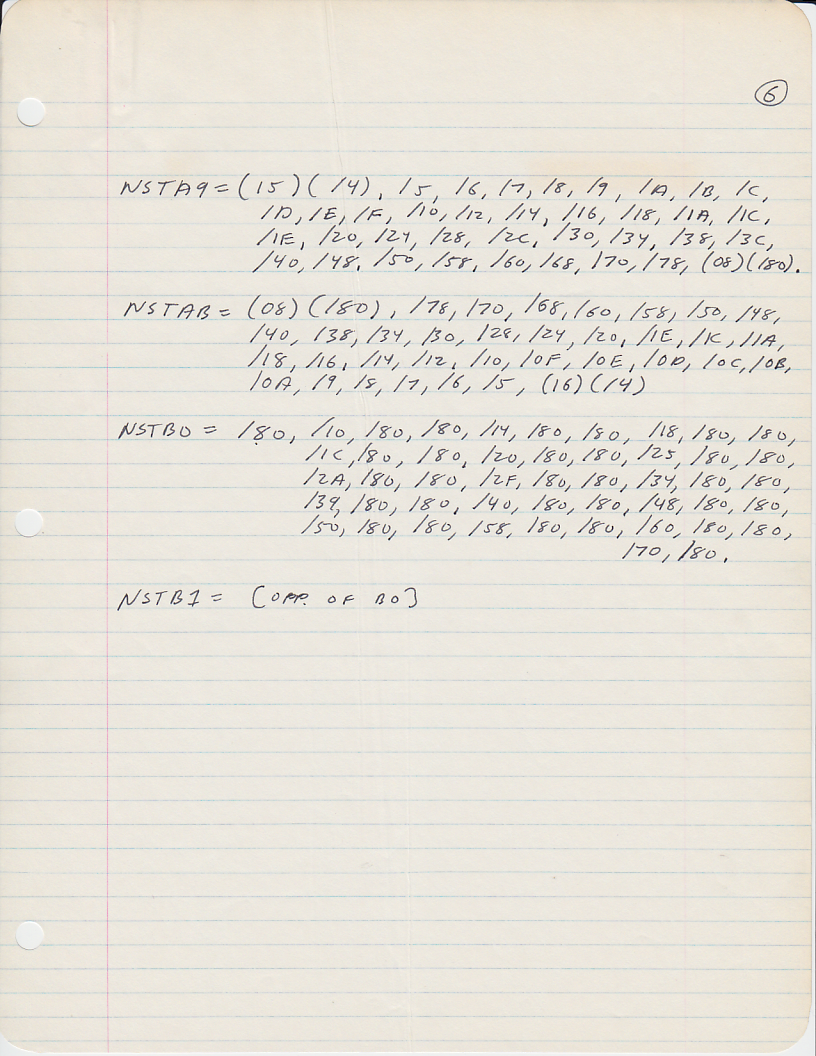 6
NSTA9 = (15)(/4), /5, /6, /7, /8, /9, /A, /B, /C,
/D, /E, /F, /10, /12, /14, /16, /18, /1A, /1C,
/1E, /20, /24, /28, /2C, /30, /34, /38, /3C,
/40, /48, /50, /58, /60, /68, /70, /78, (08)(180).
NSTAB = (08)(/80), /78, /70, /68, /60, /58, /50, /48,
/40, /38, /34, /30, /28, /24, /20, /1E, /1C, /1A,
/18, /16, /14, /12, /10, /0F, /0E, /0D, /0C, /0B,
/0A, /9, /8, /7, /6, /5, (16)(/4)
NSTB0 = /80, /10, /80, /80, /14, /80, /80, /18, /80, /80,
/1C, /80, /80, /20, /80, /80, /25, /80, /80,
/2A, /80, /80, /2F, /80, /80, /34, /80, /80,
/39, /80, /80, /40, /80, /80, /48, /80, /80,
/50, /80, /80, /58, /80, /80, /60, /80, /80,
/70, /80.
NSTB1 = [OPP. OF B0]